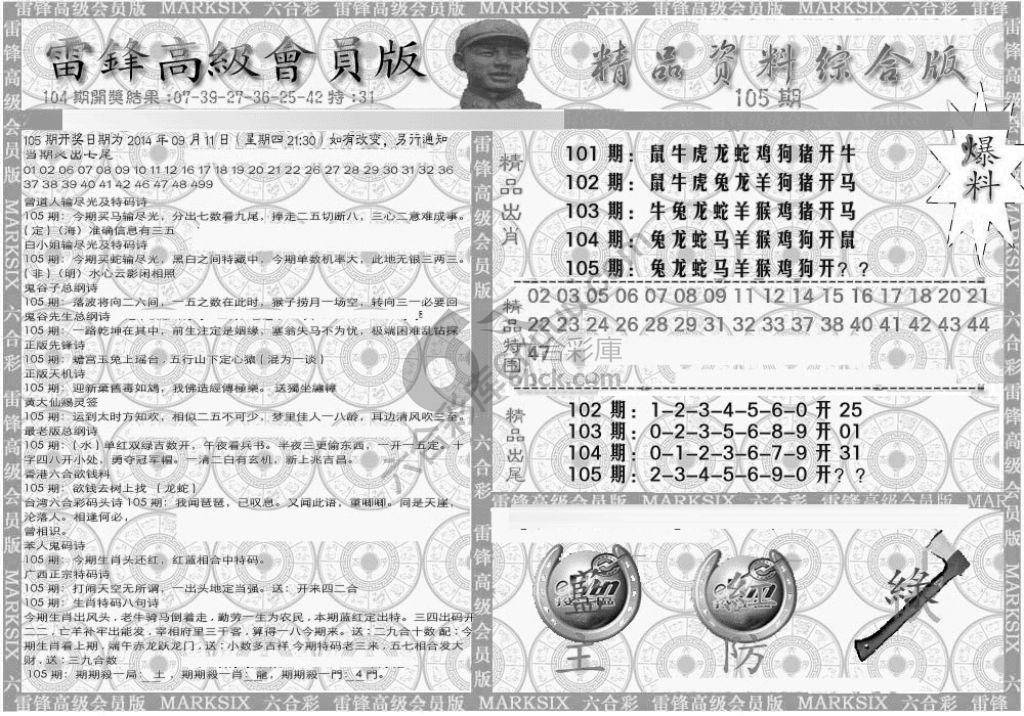 雷锋高级会员版 MARKSIX 六合彩 雷锋高级会员版 MARKSIX 六合彩 雷锋高级会员版 MARKSIX 六合彩 雷锋
雷鋒高級會員版
104期開獎結果:07-39-27-36-25-42特:31
精品資料綜合版
105期
爆料
105期开奖日期为2014年09月11日（星期四21:30）如有改变，另行通知
01 02 06 07 08 09 10 11 12 16 17 18 19 20 21 22 26 27 28 29 30 31 32 36
37 38 39 40 41 42 46 47 48 499
曾道人输尽光及特码诗
105期：今期买马输尽光，分出七数看九尾，捧走二五切断八，三心二意难成事。
{定}（海）准确信息有三五
白小姐输尽光及特码诗
105期：今期买蛇输尽光，黑白之间特藏中，今期单数机率大，此地无银三两三。
{非}（明）水心云影闲相照
鬼谷子总纲诗
105期：落波将向二六间，一五之数在此时，猴子捞月一场空，转向三一必要回
鬼谷先生总纲诗
105期：一路乾坤在其中，前生注定是姻缘，塞翁失马不为忧，极端困难乱钻探
正版先锋诗
105期：蟾宫玉兔上瑶台，五行山下定心猿{混为一谈}
正版天机诗
105期：迎新棄舊毒如鴆，我佛造經傳極樂。送獨坐
黄大仙赐灵签
105期：运到太时方知欢，相似二五不可少，梦里佳人一八龄，耳边清风吹三至。
最老版总纲诗
105期：{水}单红双绿吉数开，午夜看兵书。半夜三更偷东西，一开一五定。十
字四八开小处，勇夺冠军帽。一清二白有玄机，新上兆吉昌。
香港六合欲钱料
105期：欲钱去树上找 {龙蛇}
台湾六合彩码头诗 105期：我闻琵琶，已叹息。又闻此语，重唧唧。同是天崖，
沦落人。相逢何必，
曾相识。
苯人鬼码诗
105期：今期生肖头还红，红蓝相合中特码。
广西正宗特码诗
105期：打闹天空无所谓，一出头地定当强。送：开来四二合
105期：生肖特码八句诗
今期生肖出风头，老牛骑马倒着走，勤劳一生为农民，本期蓝红定出特。三四出码开
二二，亡羊补牢出能发，宰相府里三千客，算得一八今期来。送：二九合十数 配：今
期生肖看上期，端午赤龙跃龙门，送：小数多吉祥 今期特码老三来，五七相合发大
财，送：三九合数
105期：期期殺一局：土，期期殺一肖：龍，期期殺一門：4門。
精品出肖
101期：鼠牛虎龙蛇鸡狗猪开牛
102期：鼠牛虎兔龙羊狗猪开马
103期：牛兔龙蛇羊猴鸡猪开马
104期：兔龙蛇马羊猴鸡狗开鼠
105期：兔龙蛇马羊猴鸡狗开？？
精品特围
02 03 05 06 07 08 09 11 12 14 15 16 17 18 20 21
22 23 24 26 28 29 31 32 33 37 38 40 41 42 43 44
47
六合彩库
精品出尾
102期：1-2-3-4-5-6-0开25
103期：0-2-3-5-6-8-9开01
104期：0-1-2-3-6-7-9开31
105期：2-3-4-5-6-9-0开？？
雷锋高级会员版 MARKSIX 六合彩 雷锋高级会员版 MARKSIX
主
防
綠
雷锋高级会员版 MARKSIX 六合彩 雷锋高级会员版 MARKSIX 六合彩 雷锋高级会员版 MARKSIX 六合彩 雷锋